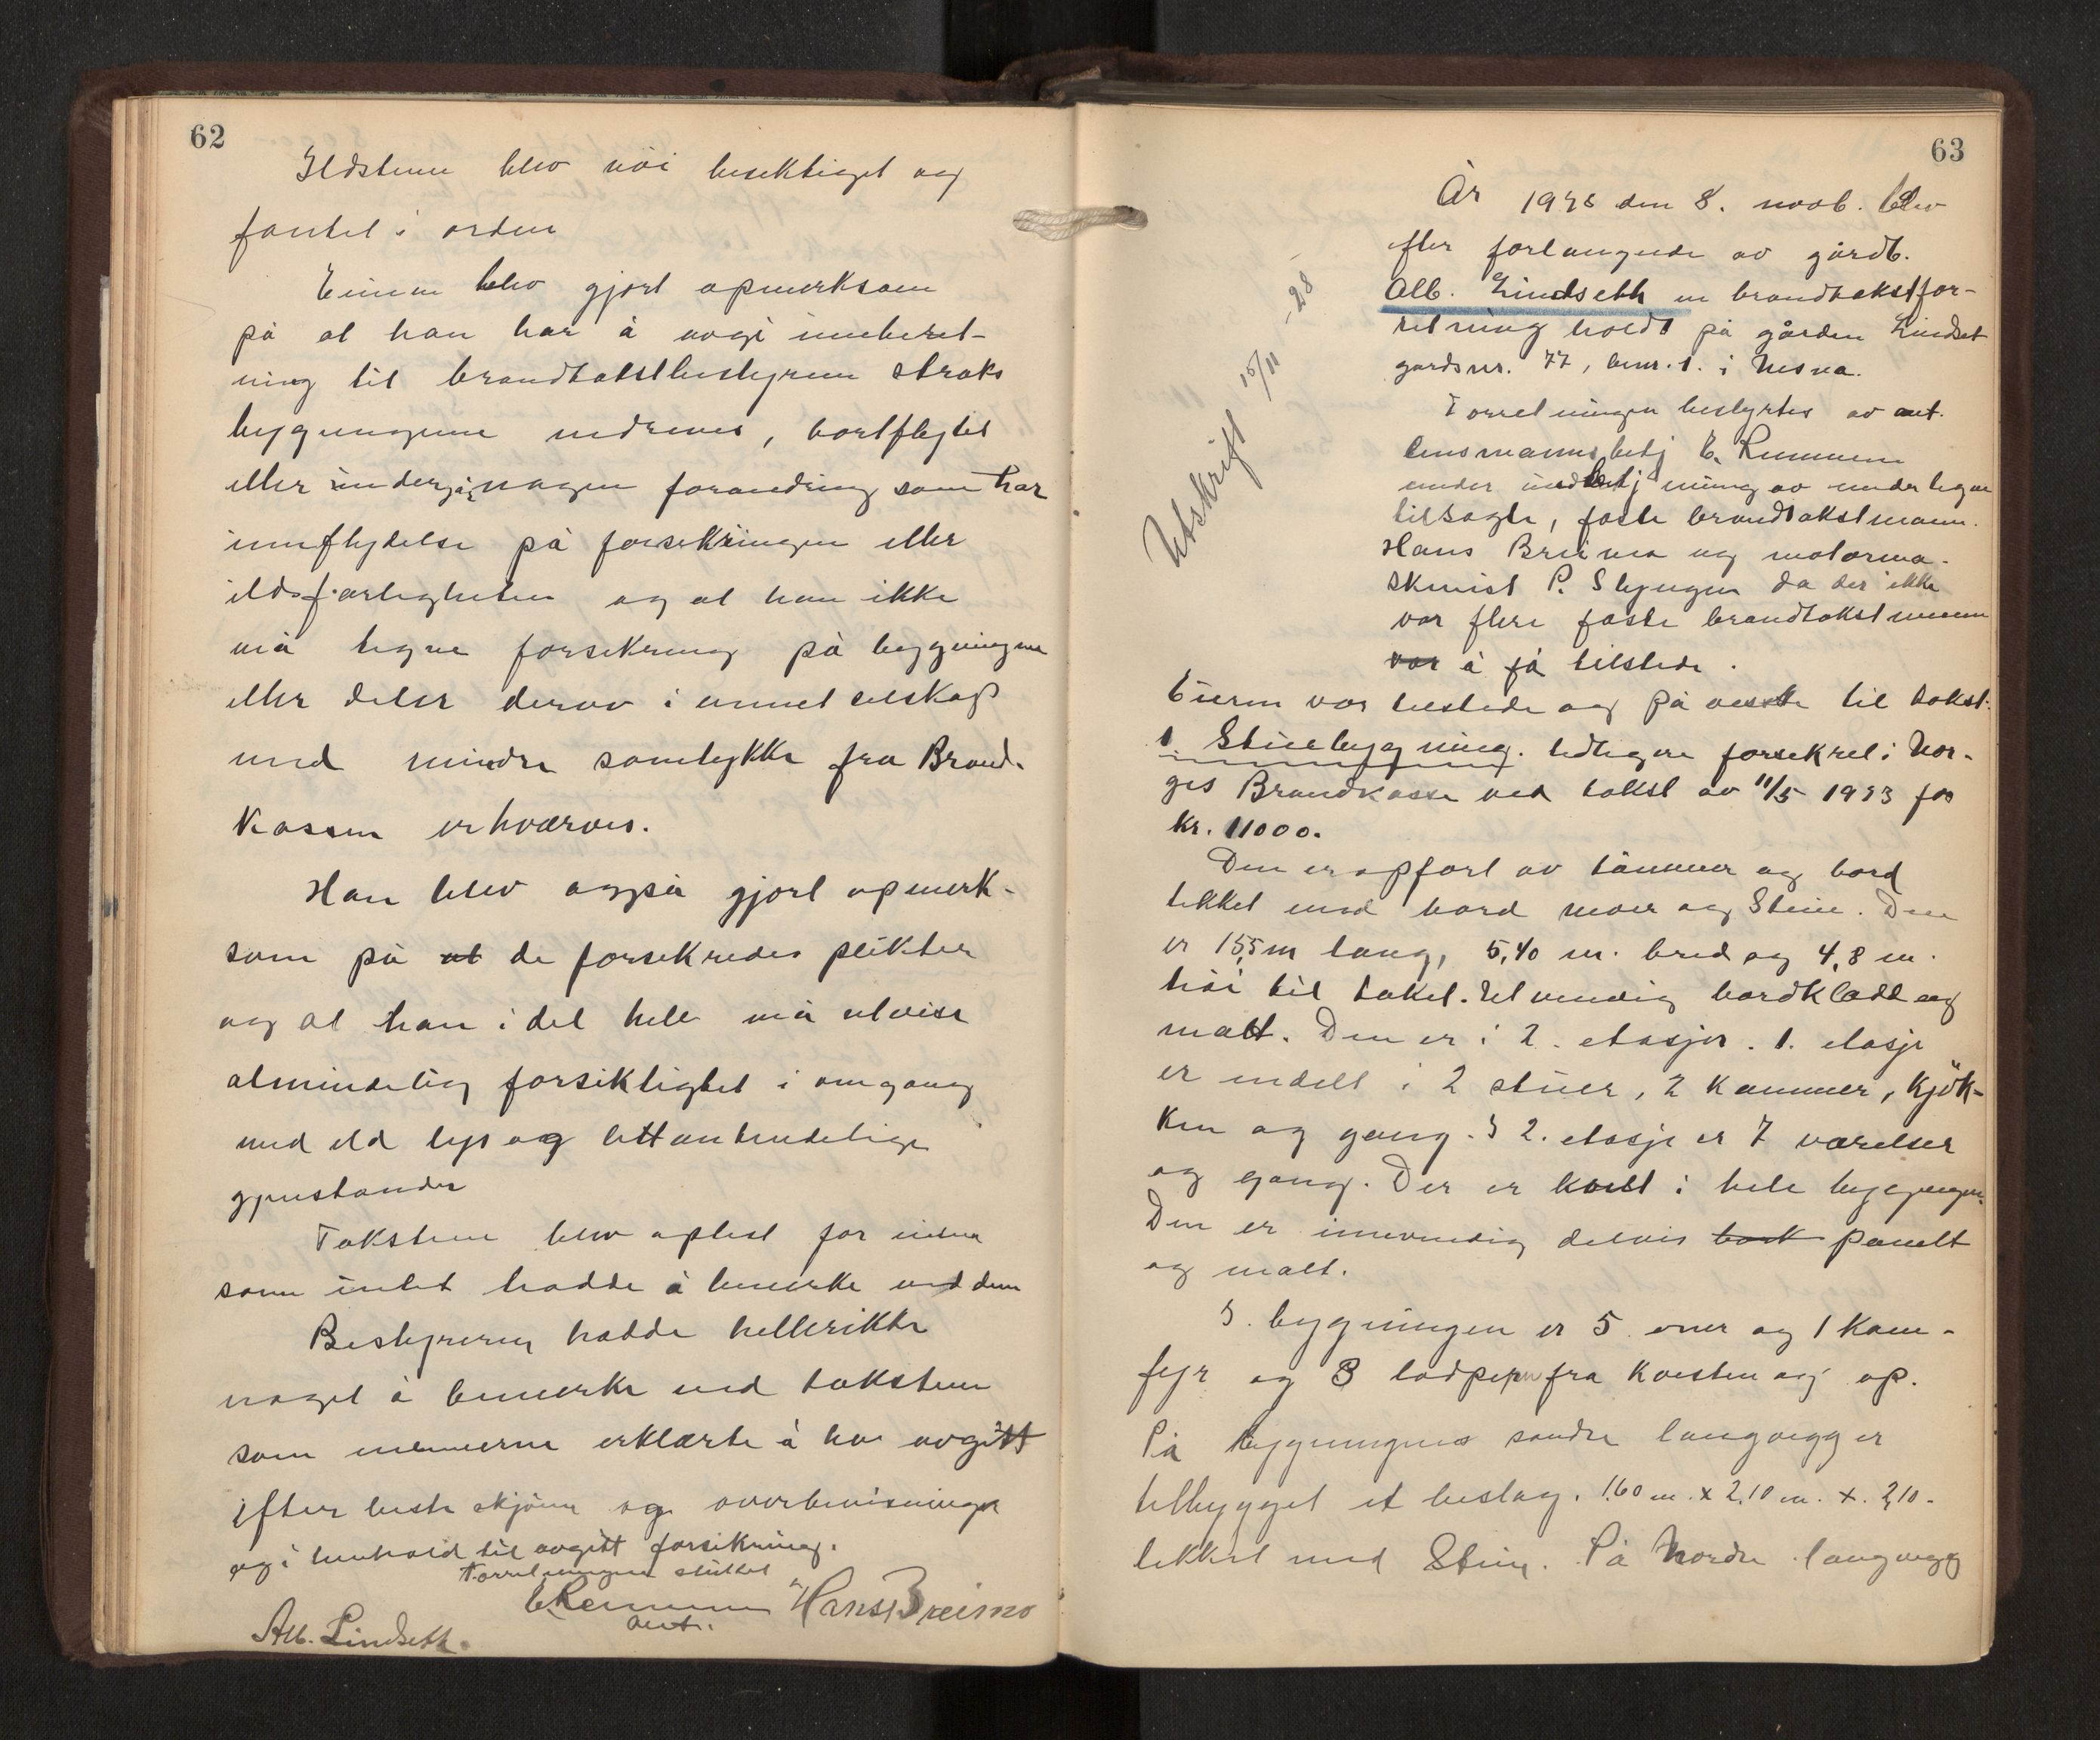 62
Ildstene blev nöi besiktiget og
fantet i orden
Eieren blev gjort opmerksom
på at han har å avgi inneberet-
ning til brandtakstbestyreren straks
bygningene nedrives, bortflyttet
eller undergår nogen forandring som har
innflydelse på forsikringen eller
ildsfarligheten og at han ikke
må tegne forsikring på bygningene
eller deler derav i annet selskap
med mindre samtykke fra Brand-
kassen erhverves.
Han blev også gjort opmerk-
som på at de forsikredes plikter
og at han i det hele må utvise
almindelig forsiktighet i omgang
med ild lys og lettantendelige
gjenstander
Takstene blev oplest for eieren
som intet hadde å bemerke ved dem
Bestyreren hadde heller ikke
noget å bemerke ved takstene
som mennerne erklærte å ha avgitt
efter beste skjönn og overbevisninger
og i henhold til avgitt forsikring.
Forretningen sluttet
Hans Breimo
aut.
Alb. Lindseth.
63
År 1928 den 8. novb. blev
efter forlangende av gårdb.
Alb. Lindseth en brandtakstfor-
retning holdt på gården Lindset
gardsnr. 77, bnr. 1. i Nesna.
Forretningen bestyrtes av aut.
lensmannsbetj
tilsagte, faste brandtakstmann.
Hans Breimo og motorma-
skinist P. Slyngen da der ikke
var flere faste brandtakstmenn
var å få tilstede.
Utskrift 15/11 -28
Eieren var tilstede og på viste til takst:
1. Stuebygning. tidligere forsikret i Nor-
ges Brandkasse ved takst av 11/5 1923 for
kr. 11000.
Den er opfört av tömmer og bord
tekket med bord never og Sten. Den
er 15,5 m lang, 5,40 m. bred og 4,8 m.
höi til taket. Utvendig bordklædt og
malt. Den er i 2. etasjer. 1. etasje
er indelt i 2 stuer, 2 kammer, kjök-
ken og gang. I 2. etasje er 7 værelser
og gang. Der er kvist i hele bygningen.
Den er innvendig delvis panelt
og malt.
I. bygningen er 5 ovner og 1 kom-
fyr og 3 lodpiper fra kvisten og op.
På bygningens söndre langvegg er
tilbygget et bislag. 1,60 m. x 2,10 m. x. 2,10.
tekket med Sten. På Nordre langvegg